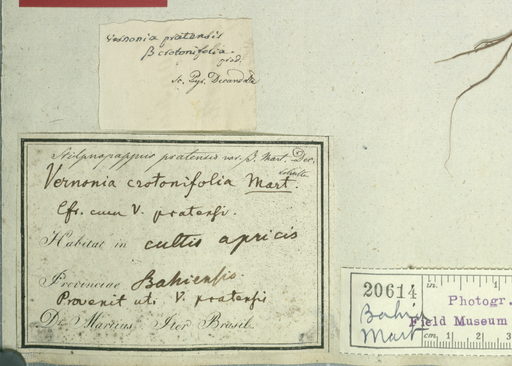 Vernonia pratensis
β crotonifolia.
prod.
sc. Pyr. Decandolle
Stilpnopappus pratensis var. β. Mart. Dec.
Vernonia crotonifolia Mart.
Cfr. cum V. pratensi.
Habitat in cultis apricis
Provinciae Bahiensis
Provenit uti V. pratensis
Dr. Martius Iter Brasil.
20614
Bahia
Mart
in. 1
Photogr.
Field Museum
cm. 1 2 3